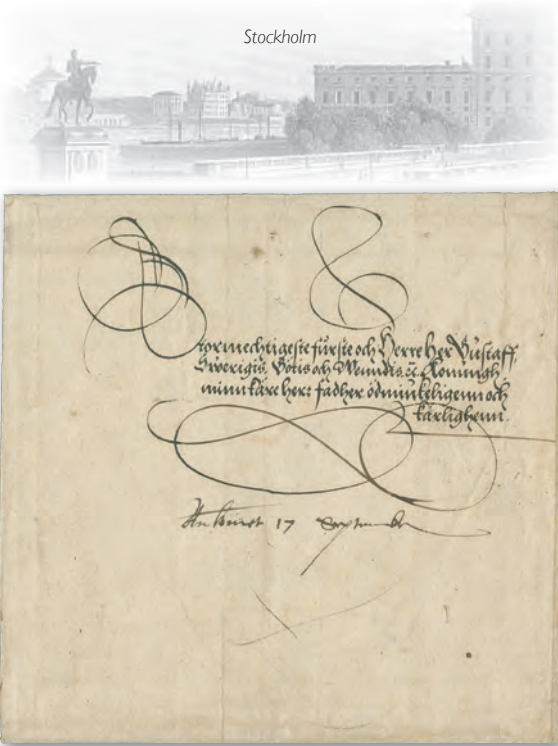 Stockholm
Stormechtigeste fürste och Herre Her Gustaff,
Swerigis, Götis och Wendis &c Konningh
minn käre herr fadher ödmiukeligenn och
kärlighenn.
17 Septemb